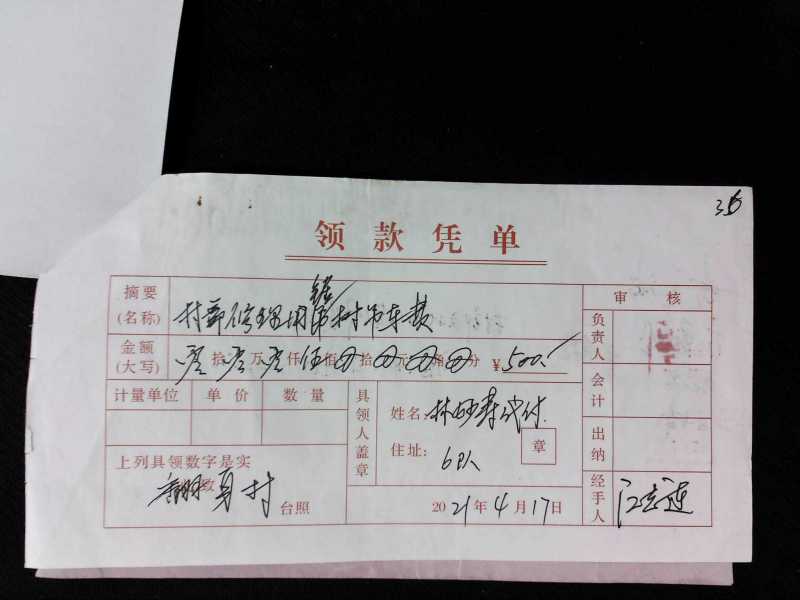 35
领款凭单
摘要(名称) 村部修理用 吊车费 审核
金额(大写) 拾 万 仟 伍 佰 拾 元 角 分 ¥500.- 负责人
计量单位 单价 数量 具领人盖章 姓名: 林 寿代付. 会计
住址: 6队 章 出纳
上列具领数字是实
此致
村 台照 2021年4月17日 经手人 江志